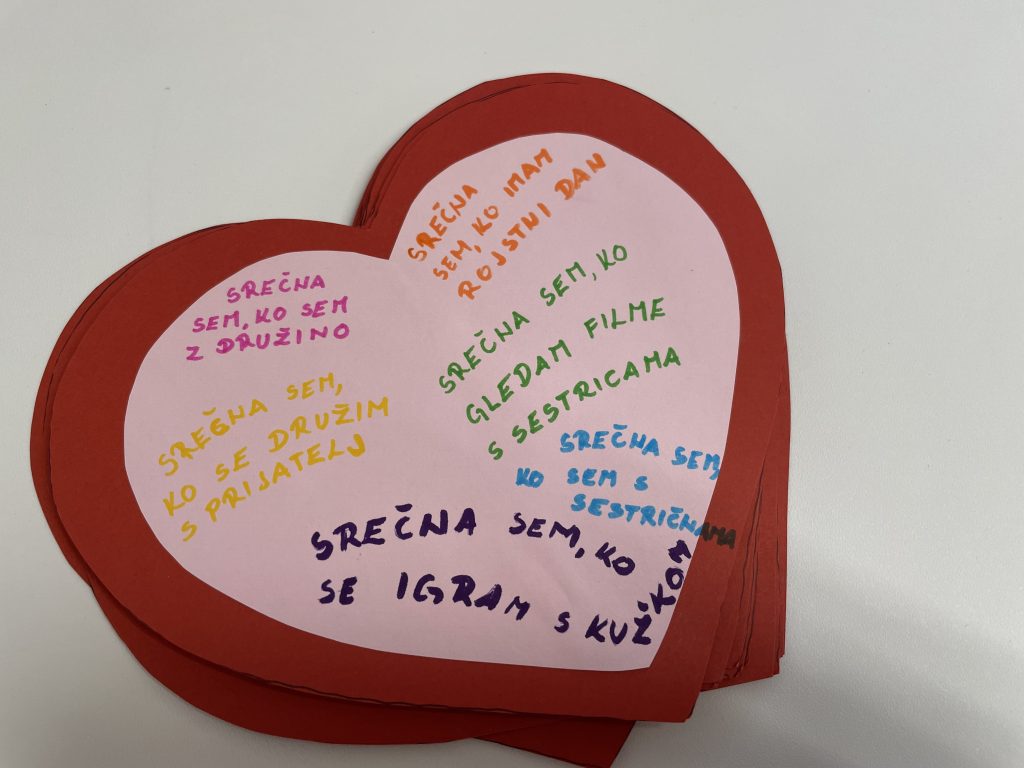 SREČNA
SEM, KO IMAM
ROJSTNI DAN
SREČNA
SEM, KO SEM
Z DRUŽINO
SREČNA SEM, KO
GLEDAM FILME
S SESTRICAMA
SREČNA SEM,
KO SE DRUŽIM
S PRIJATELJ
SREČNA SEM,
KO SEM S
SESTRIČNAMA
SREČNA SEM, KO
SE IGRAM S KUŽKOM